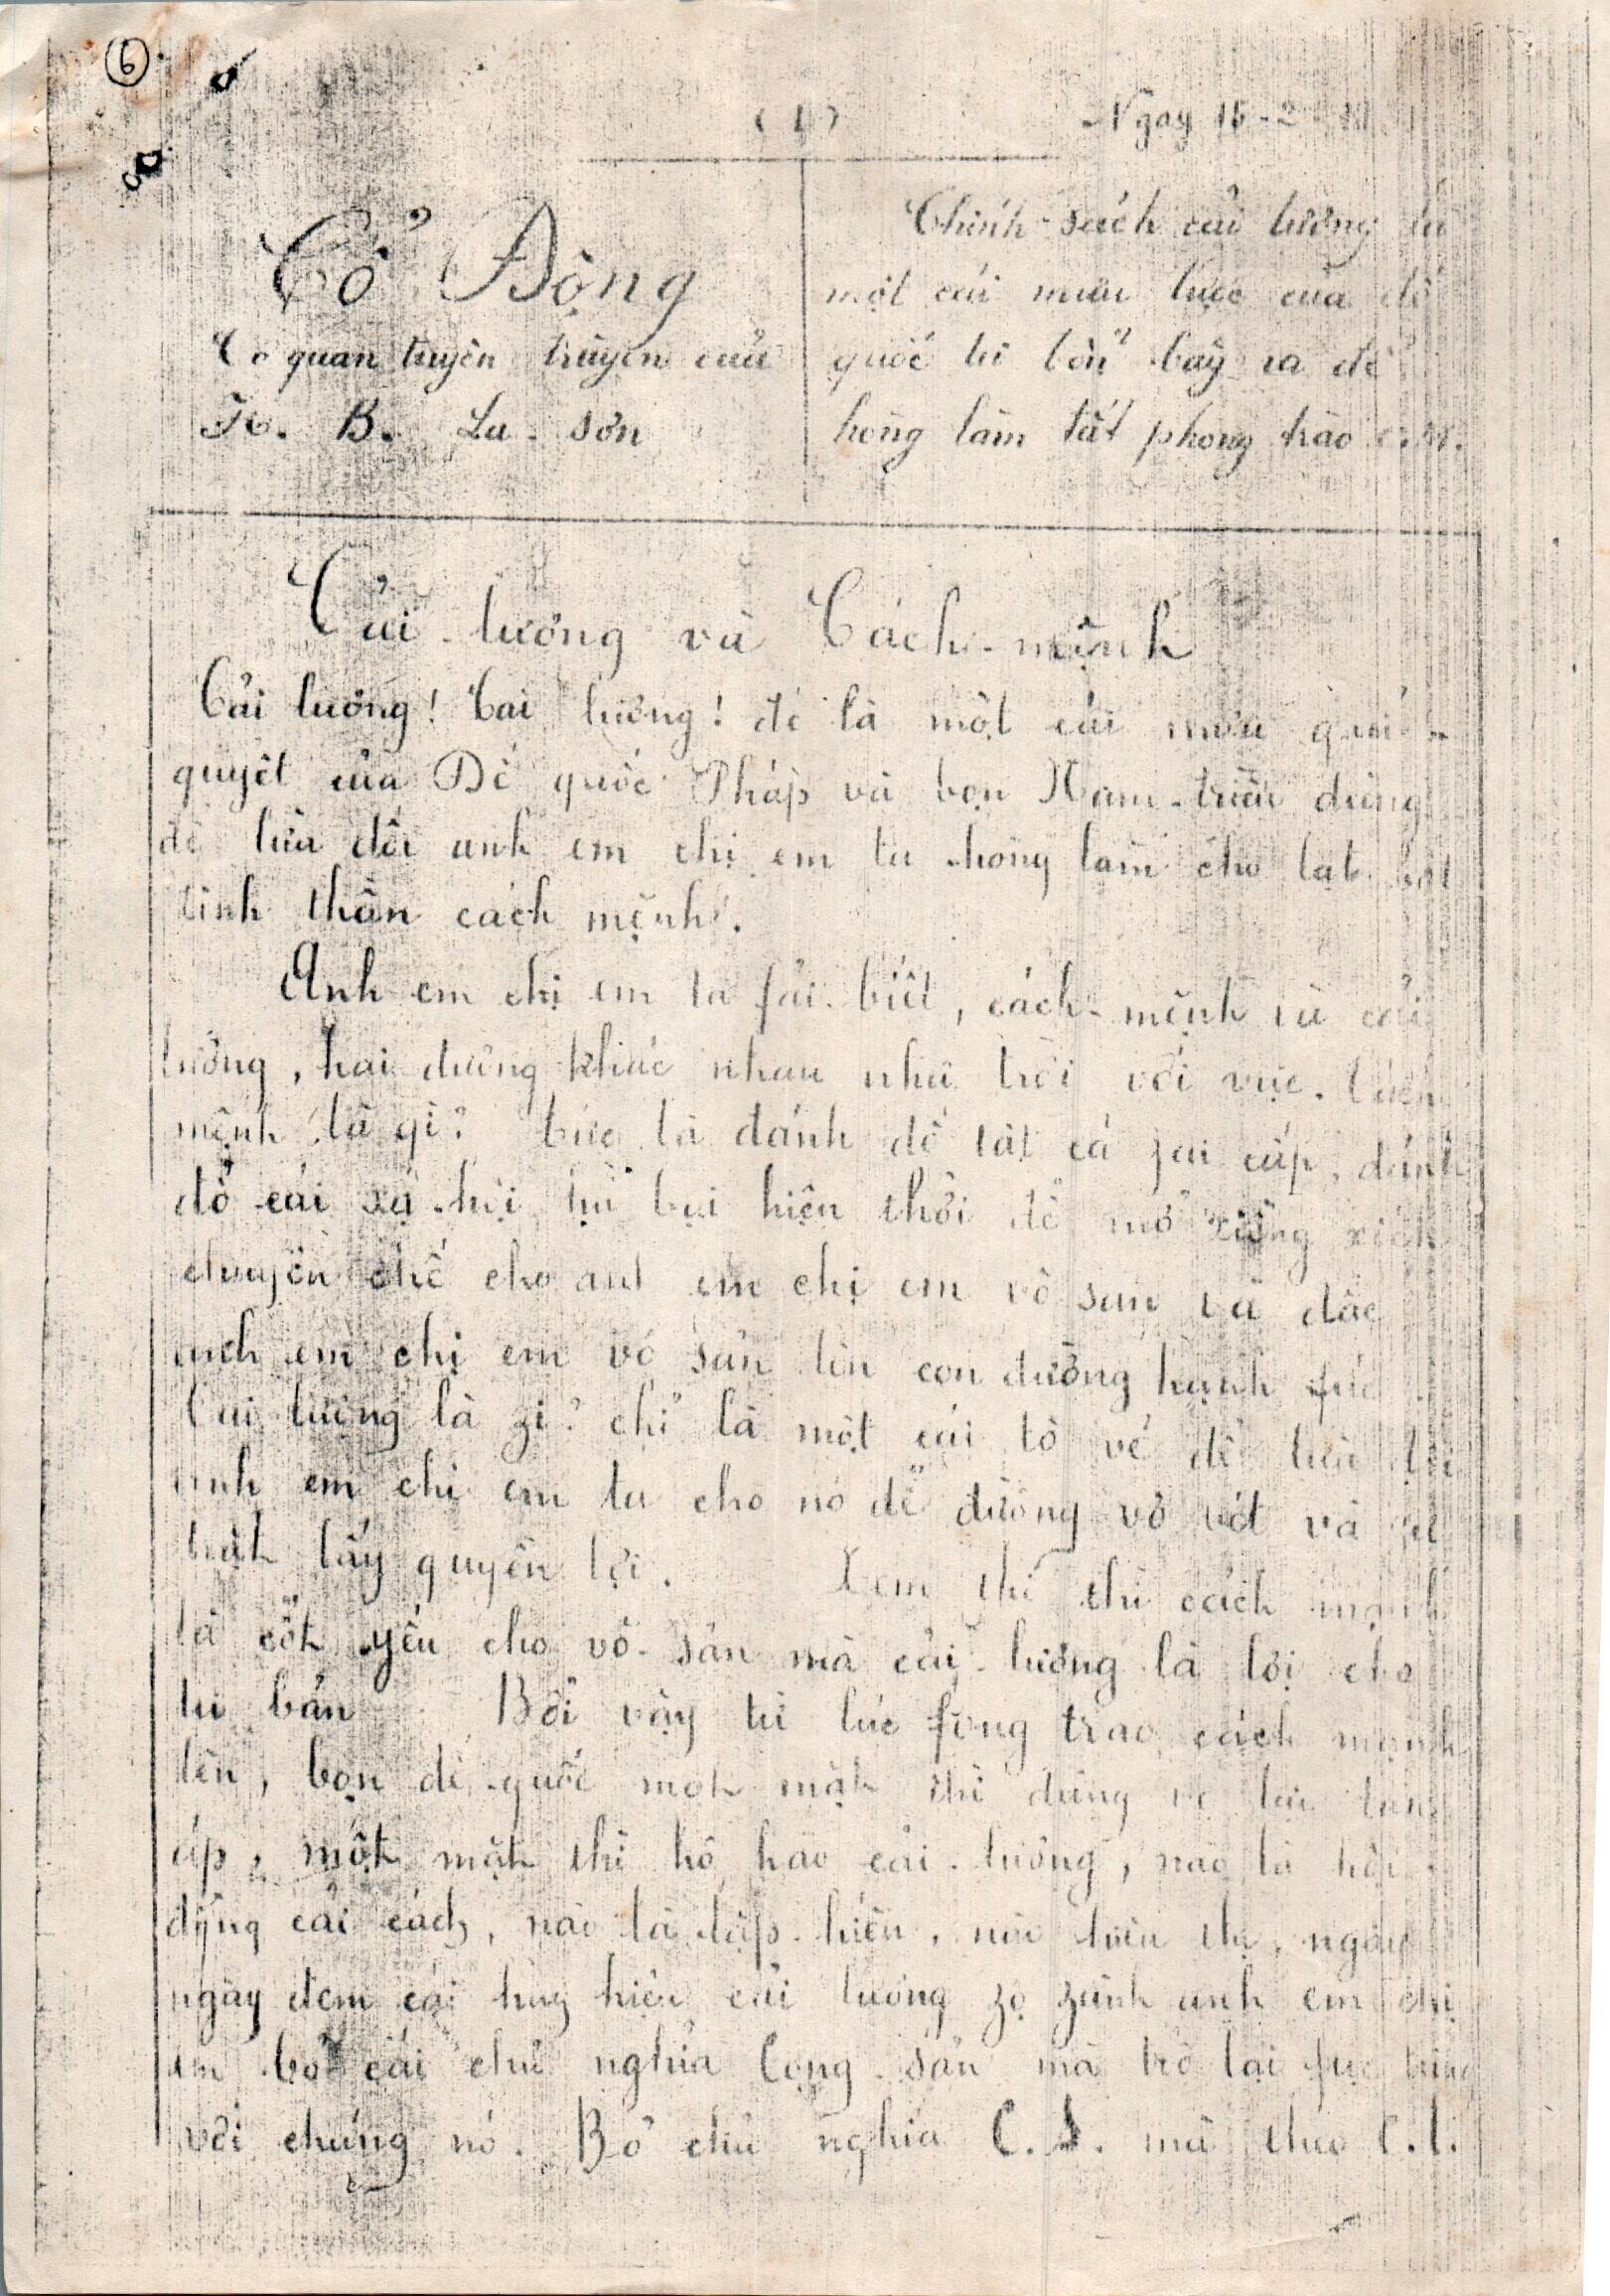 6
(1)
Ngay 15-2
Cổ Động
Cơ quan tuyên truyền của
X. B. La-sơn
Chính-sách cải lương là
một cái mưu lược của đế
quốc tư bổn bày ra để
hòng làm tắt phong trào c.m.
Cải-lương và Cách-mệnh
Cải lương! Cai lương! đó là một cái mưu quỉ
quyệt của Đế quốc Pháp và bọn Nam-triều dùng
để lừa dối anh em chị em ta hòng làm cho lạt
tinh thần cách mệnh.
Anh em chị em ta fải biết, cách-mệnh và cải
lương, hai đường khác nhau như trời với vực. Cách
mệnh là gì? tức là đánh đổ tất cả jai cấp, đánh
đổ cái xã-hội hủ bại hiện thời để mở xiềng xích
chuyên chế cho anh em chị em vô sản và dắc
anh em chị em vô sản lên con đường hạnh fúc
Cải lương là zì? chỉ là một cái tô vẻ để lừa dối
anh em chị em ta cho nó dễ đường vơ vét và
lấy quyền lợi. Xem thế thì cách mạnh
là cốt yếu cho vô-sản mà cải-lương là lợi cho
tư bản Bởi vậy từ lúc fong trao cách mạnh
lên, bọn đế-quốc mộth mặth thì dùng
áp, mộth mặth thì hô hào cải-lương, nào là hội-
đồng cải cách, nào là lập-hiến, nào ngày
ngày đem cái huy hiệu cải lương zọ zành anh em chị
em bỏ cái chủ nghĩa Cọng-sản mà trở lại fục tùng
với chúng nó. Bỏ chủ nghĩa C.S. mà theo C.l.